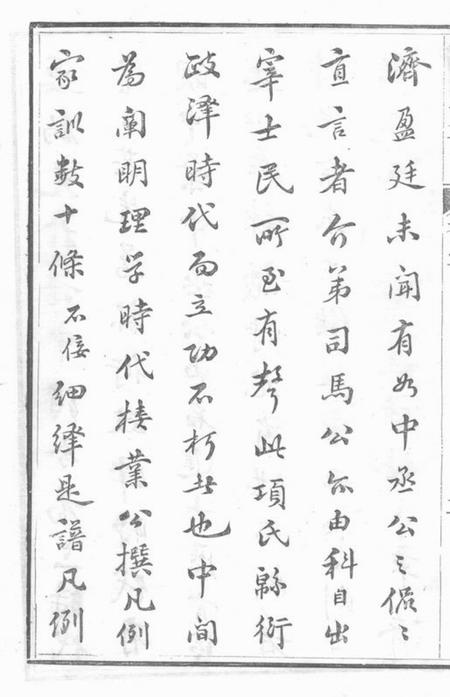 濟盈廷未聞有如中丞公之侃之
直言者介弟司馬公亦由科目出
宰士民所至有聲此項氏緜衍
政澤時代而立功不朽者也中間
為闡明理学時代接業公撰凡例
家訓數十條不佞細繹是譜凡例